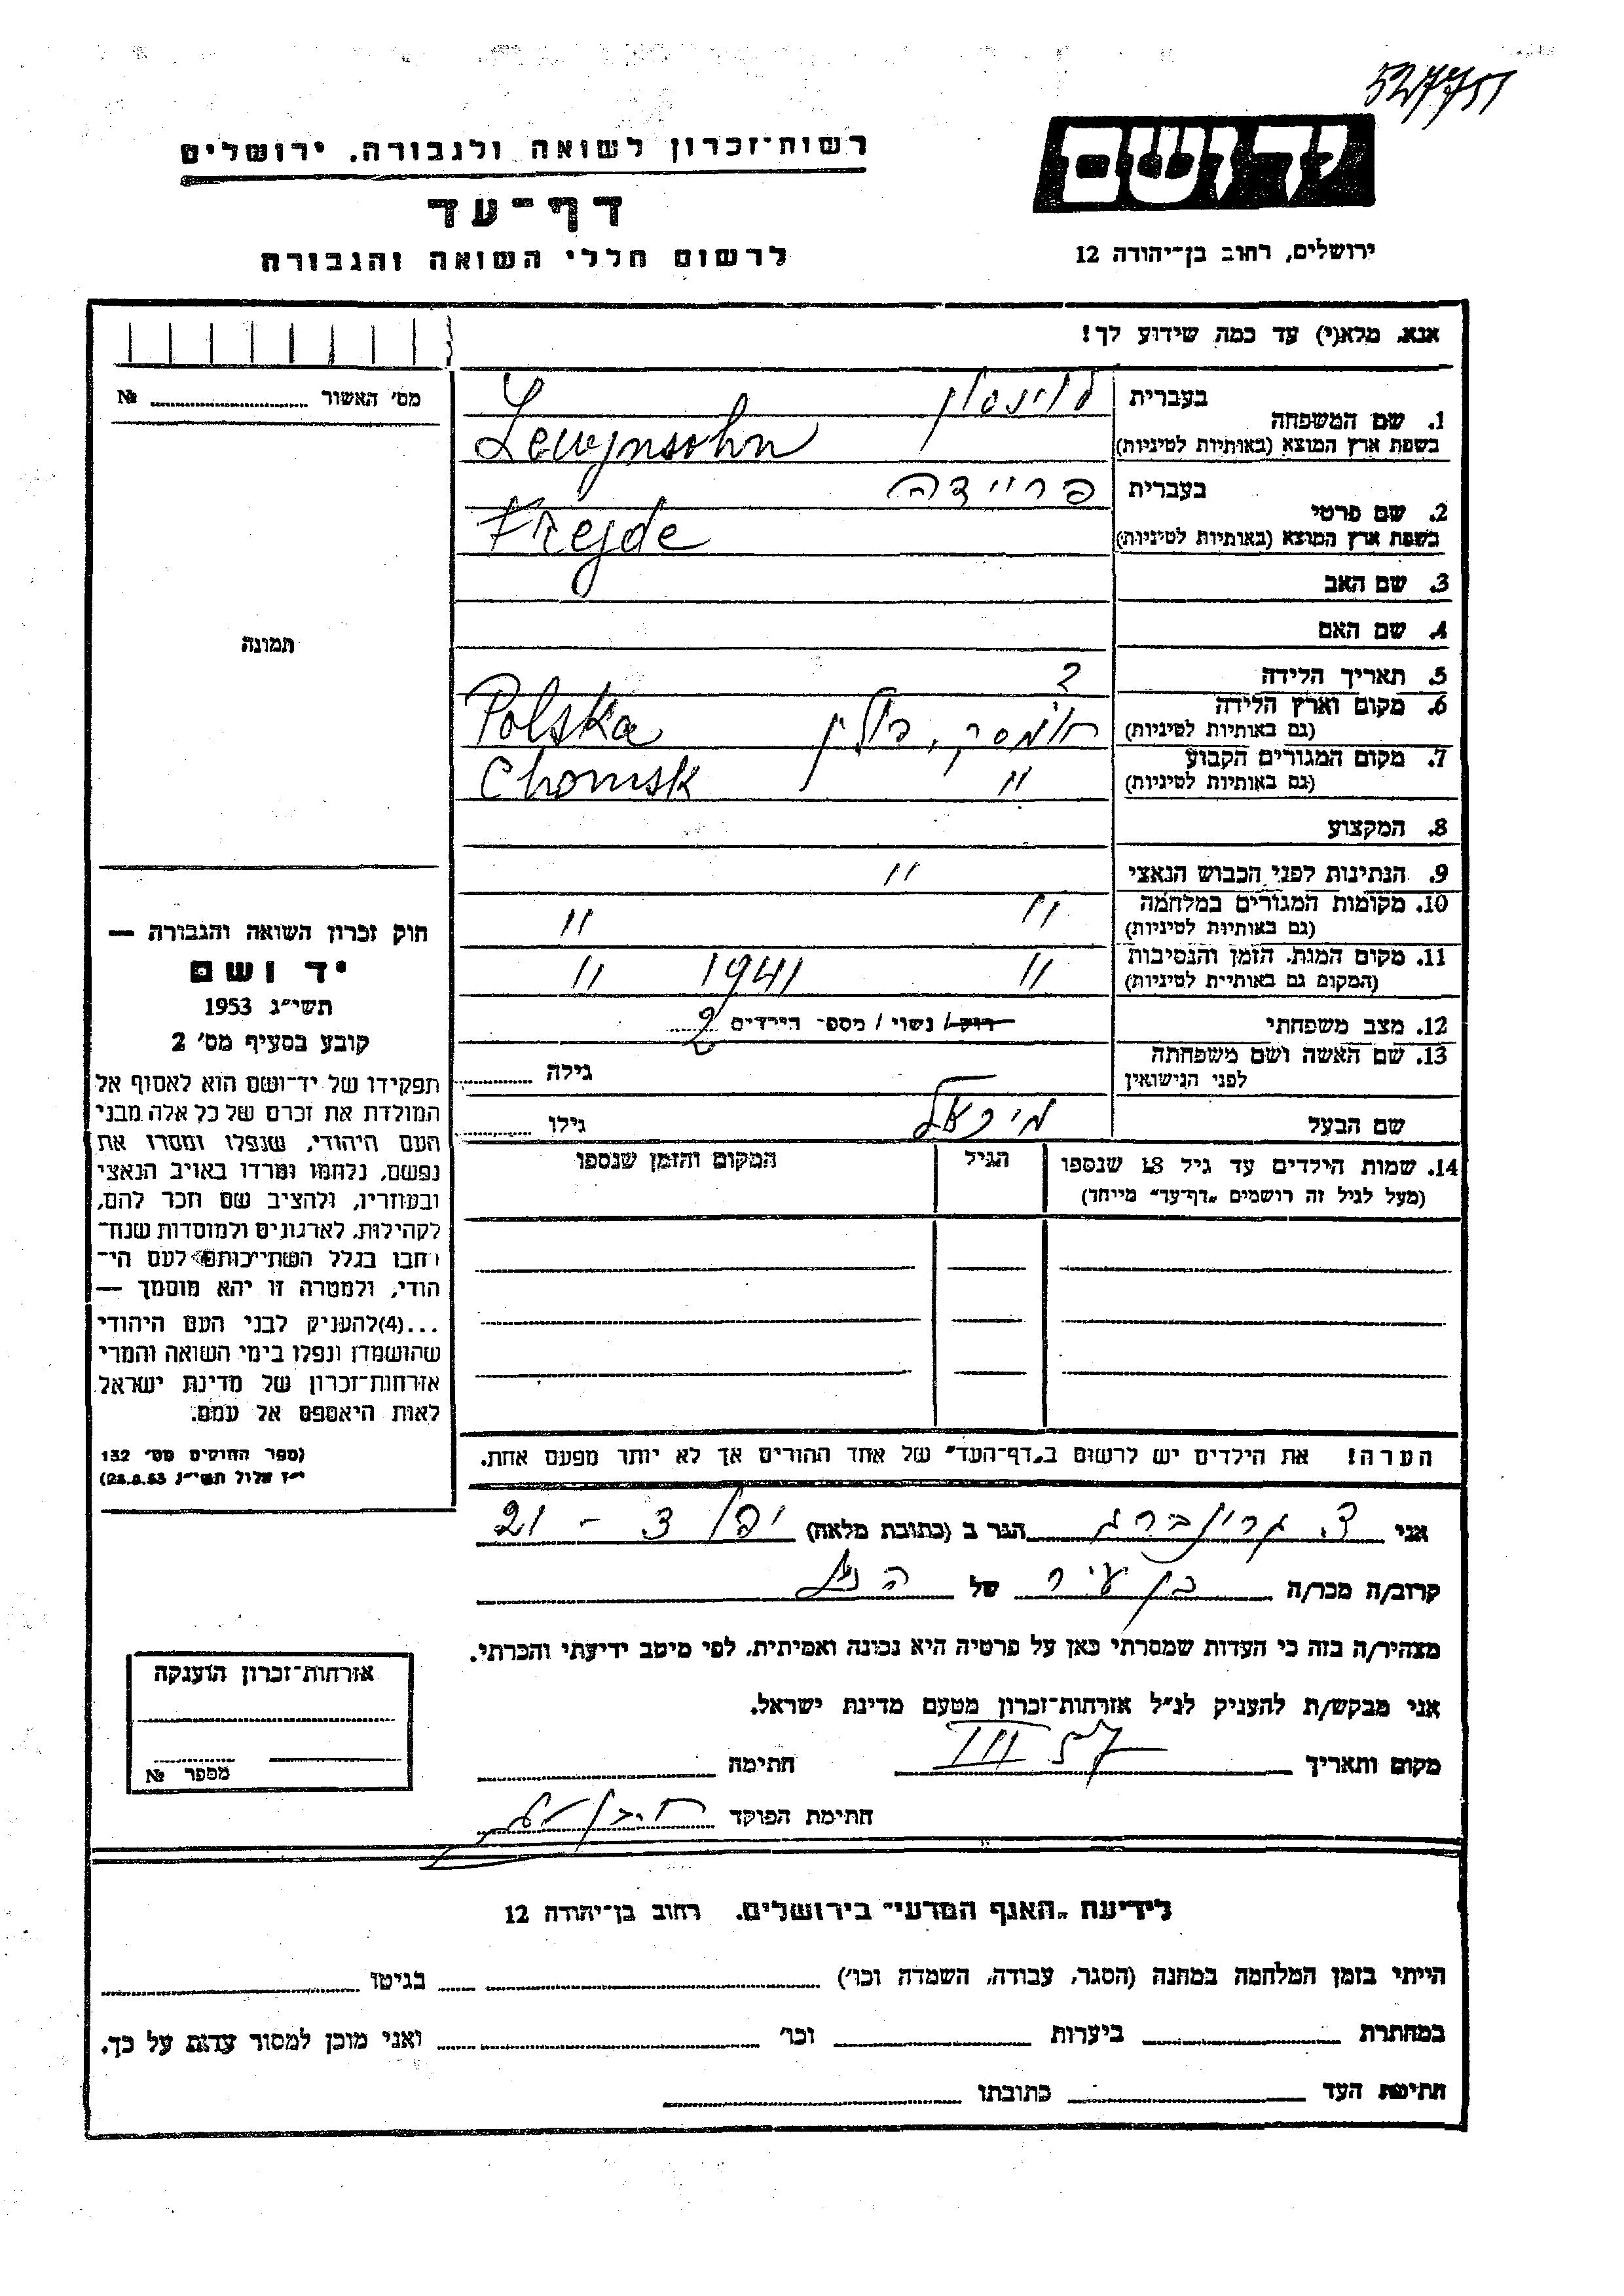 527751
יד ושם
רשות־זכרון לשואה ולגבורה, ירושלים
דף־עד
לרשום חללי השואה והגבורה
ירושלים, רחוב בן־יהודה 12
אנא, מלא(י) עד כמה שידוע לך!
מס' האשור №
1. שם המשפחה
בעברית לוינסון
בשפת ארץ המוצא (באותיות לטיניות) Lewynsohn
2. שם פרטי
בעברית פריידה
בשפת ארץ המוצא (באותיות לטיניות) Frejde
3. שם האב
4. שם האם
תמונה
5. תאריך הלידה ?
6. מקום וארץ הלידה חומסק, פולין Polska
(גם באותיות לטיניות)
7. מקום המגורים הקבוע " Chomsk
(גם באותיות לטיניות)
8. המקצוע
9. הנתינות לפני הכבוש הנאצי "
10. מקומות המגורים במלחמה " "
(גם באותיות לטיניות)
11. מקום המות, הזמן והנסיבות " 1941 "
(המקום גם באותיות לטיניות)
12. מצב משפחתי רוק/ נשוי / מספ־ הילדים 2
13. שם האשה ושם משפחתה גילה
לפני הנישואין
שם הבעל מיכאל גילו
14. שמות הילדים עד גיל 18 שנספו הגיל המקום והזמן שנספו
(מעל לגיל זה רושמים „דף־עד" מייחד)
חוק זכרון השואה והגבורה —
יד ושם
תשי"ג 1953
קובע בסעיף מס' 2
תפקידו של יד־ושם הוא לאסוף אל
המולדת את זכרם של כל אלה מבני
העם היהודי, שנפלו ומסרו את
נפשם, נלחמו ומרדו באויב הנאצי
ובעוזריו, ולהציב שם וזכר להם,
לקהילות, לארגונים ולמוסדות שנח־
רבו בגלל השתייכותם לעם הי־
הודי, ולמטרה זו יהא מוסמך —
...(4) להעניק לבני העם היהודי
שהושמדו ונפלו בימי השואה והמרי
אזרחות־זכרון של מדינת ישראל
לאות היאספם אל עמם.
(ספר החוקים מס' 132
י"ז אלול תשי"ג 28.8.53)
הערה! את הילדים יש לרשום ב„דף־העד" של אחד ההורים אך לא יותר מפעם אחת.
אני צ. גרינברג הגר ב (כתובת מלאה) יפו 3 - 21
קרוב/ה מכר/ה בן עיר של הנ"ל
מצהיר/ה בזה כי העדות שמסרתי כאן על פרטיה היא נכונה ואמיתית, לפי מיטב ידיעתי והכרתי.
אני מבקש/ת להעניק לנ"ל אזרחות־זכרון מטעם מדינת ישראל.
מקום ותאריך III 57 חתימה
חתימת הפוקד
אזרחות־זכרון הוענקה
מספר №
לידיעת „האגף המדעי" בירושלים. רחוב בן־יהודה 12
הייתי בזמן המלחמה במחנה (הסגר, עבודה, השמדה וכו') בגיטו
במחתרת ביערות וכו' ואני מוכן למסור עדות על כך.
חתימת העד כתובתו